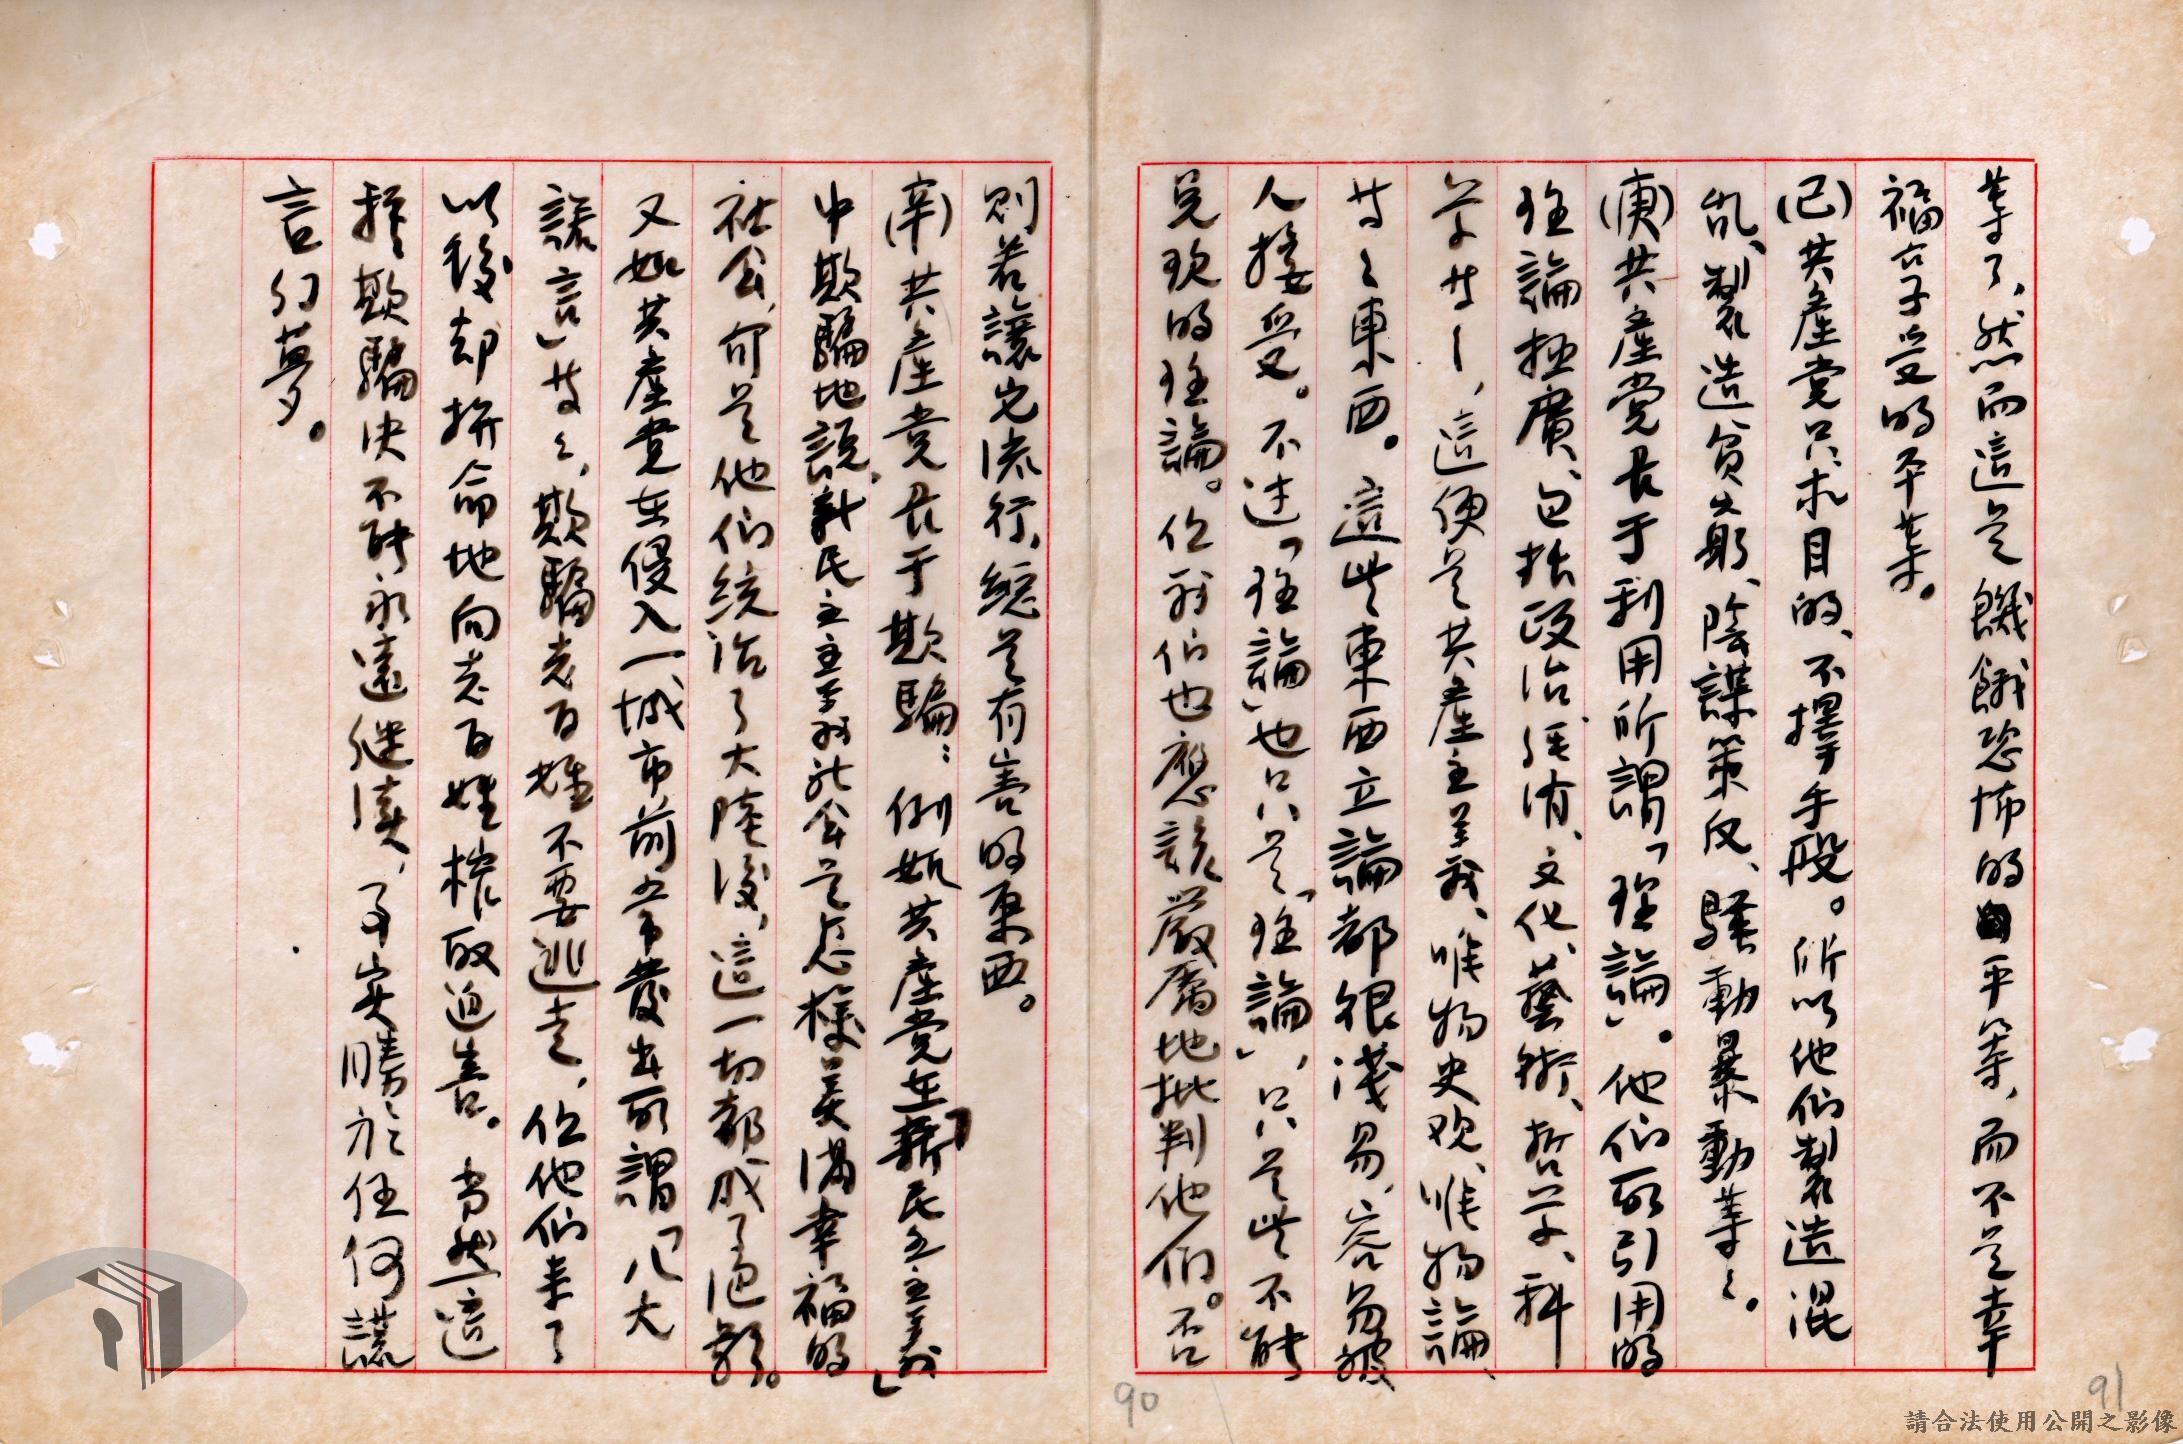 等了，然而這是饑餓恐怖的平等，而不是幸
福享受的平等。
(己)共產党只求目的、不擇手段。所以他们製造混
乱、製造貧窮、陰謀策反、騷動暴動等々。
(庚)共產党長于利用所謂「理論」。他们所引用的
理論極廣、包括政治、経済、文化、藝術、哲学、科
学等々，這便是共產主義、唯物史观、唯物論、
等々東西。這些東西立論都很淺易、容易被
人接受。不过「理論」也只是「理論」，只是些不能
兌現的理論。但我们也應該嚴厲地批判他们。否
則若讓它流行，總是有害的東西。
(辛)共產党長于欺騙：例如共產党在「新民主主義」
中欺騙地說，新民主主義社会是怎樣美満幸福的
社会，可是他们统治了大陸後，這一切都成了泡影。
又如共產党在侵入一城市前必常發出所謂「八大
諾言」等々，欺騙老百姓不要逃走，但他们来了
以後却拚命地向老百姓榨取迫害。当然這
種欺騙决不能永遠继續，事实勝於任何謊
言幻夢。
90
91
請合法使用公開之影像